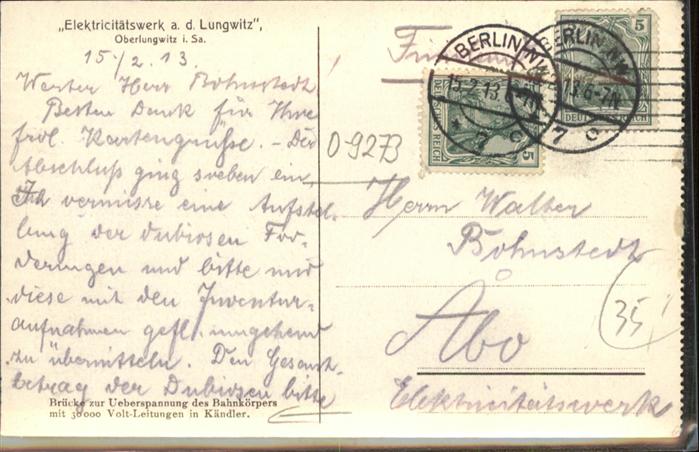 „Elektricitätswerk a. d. Lungwitz",
Oberlungwitz i. Sa.
15/2. 13.
Werter Herr Bohnstedt
Besten Dank für Ihre
frdl. Kartengrüße. - Der
Abschluß ging soeben ein
Ich vermisse eine Aufstel-
lung der dubiosen For-
derungen und bitte mir
diese mit den Inventur-
aufnahmen gefl. umgehend
zu übermitteln. Den Gesamt-
betrag der Dubiosen bitte
Brücke zur Ueberspannung des Bahnkörpers
mit 30000 Volt-Leitungen in Kändler.
BERLIN NW
15.2.13.
7 c
BERLIN NW
13.6-7N
7 c
5
DEUTSCHES REICH
5
DEUTSCHES REICH
0-9273
Herrn Walter
Bohnstedt
Åbo
35
Elektricitätswerk